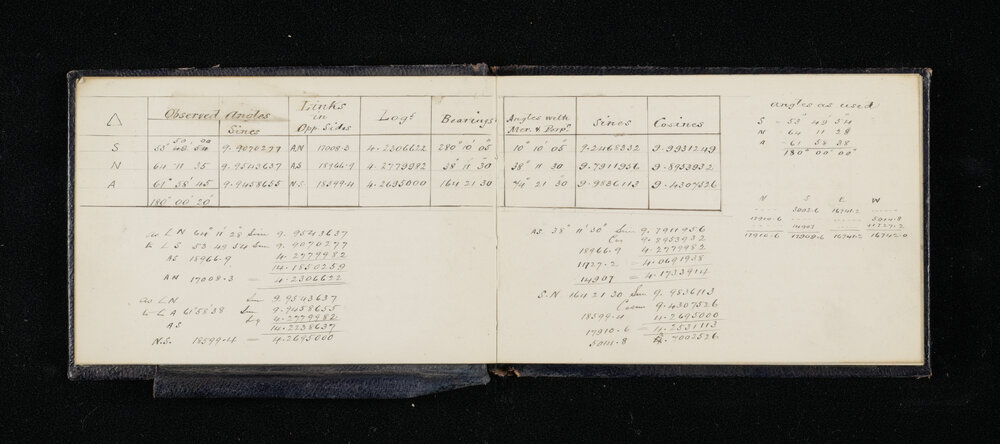 △ Observed Angles Sines Links in Opp. Sides Logs Bearings
S 53° 49 54 9.9070277 AN 17008.3 4.2306622 280° 10' 05
N 64 11 35 9.9543637 AS 18966.9 4.2779982 38° 11' 30
A 61° 58' 45 9.9458655 N.S. 18599.4 4.2695000 164 21 30
180° 00' 20"
as L N 64° 11' 28" Sine 9.9543637
L S 53 49 54 Sine 9.9070277
AS 18966.9 4.2779982
14.1850259
AN 17008.3 = 4.2306622
as L N Sine 9.9543637
L A 61°58'38 Sine 9.9458655
AS Lg 4.2779982
14.2238637
N.S. 18599.4 = 4.2695000
Angles with Mer. & Perp. Sines Cosines
10° 10' 05" 9.2468232 9.9931249
38° 11' 30 9.7911956 9.8953932
74° 21' 30 9.9836113 9.4307526
AS 38° 11' 30" Sine 9.7911956
Cos 9.8953932
18966.9 4.2779982
= 4.0691938
14907 = 4.1733914
S.N. 164 21 30 Sine 9.9836113
Cosine 9.4307526
18599.4 4.2695000
17910.6 = 4.2531113
5014.8 3.7002526
Angles as used
S = 53° 49' 54"
N = 64 11 28
A = 61 58 38
180° 00' 00"
N S E W
3003.6 16741.2
17910.6 5014.8
14907 11727.2
17910.6 17909.6 16741.2 16742.0